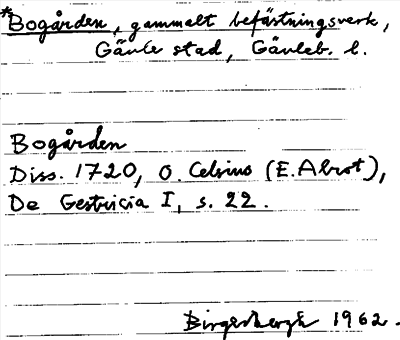 *Bogården, gammalt befästningsverk,
Gävle stad, Gävleb. l.
Bogården
Diss. 1720, O. Celsius (E. Abrot),
De Gestricia I, s. 22.
Birgersbergh 1962.